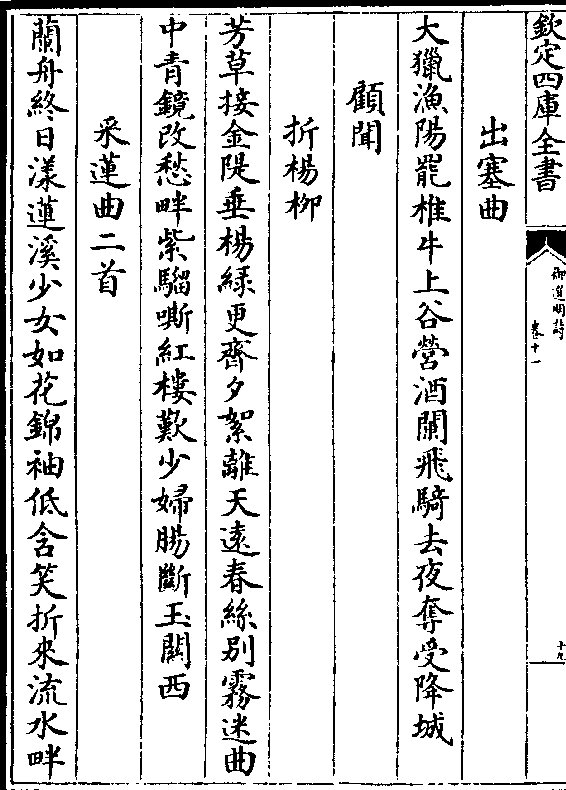 欽定四庫全書
御選明詩
卷十一
十九
出塞曲
大獵漁陽罷椎牛上谷營酒闌飛騎去夜奪受降城
顧聞
折楊柳
芳草接金隄垂楊綠更齊夕絮離天遠春絲別霧迷曲
中青鏡改愁畔紫騮嘶紅樓歎少婦腸斷玉關西
采蓮曲二首
蘭舟終日漾蓮溪少女如花錦袖低含笑折來流水畔